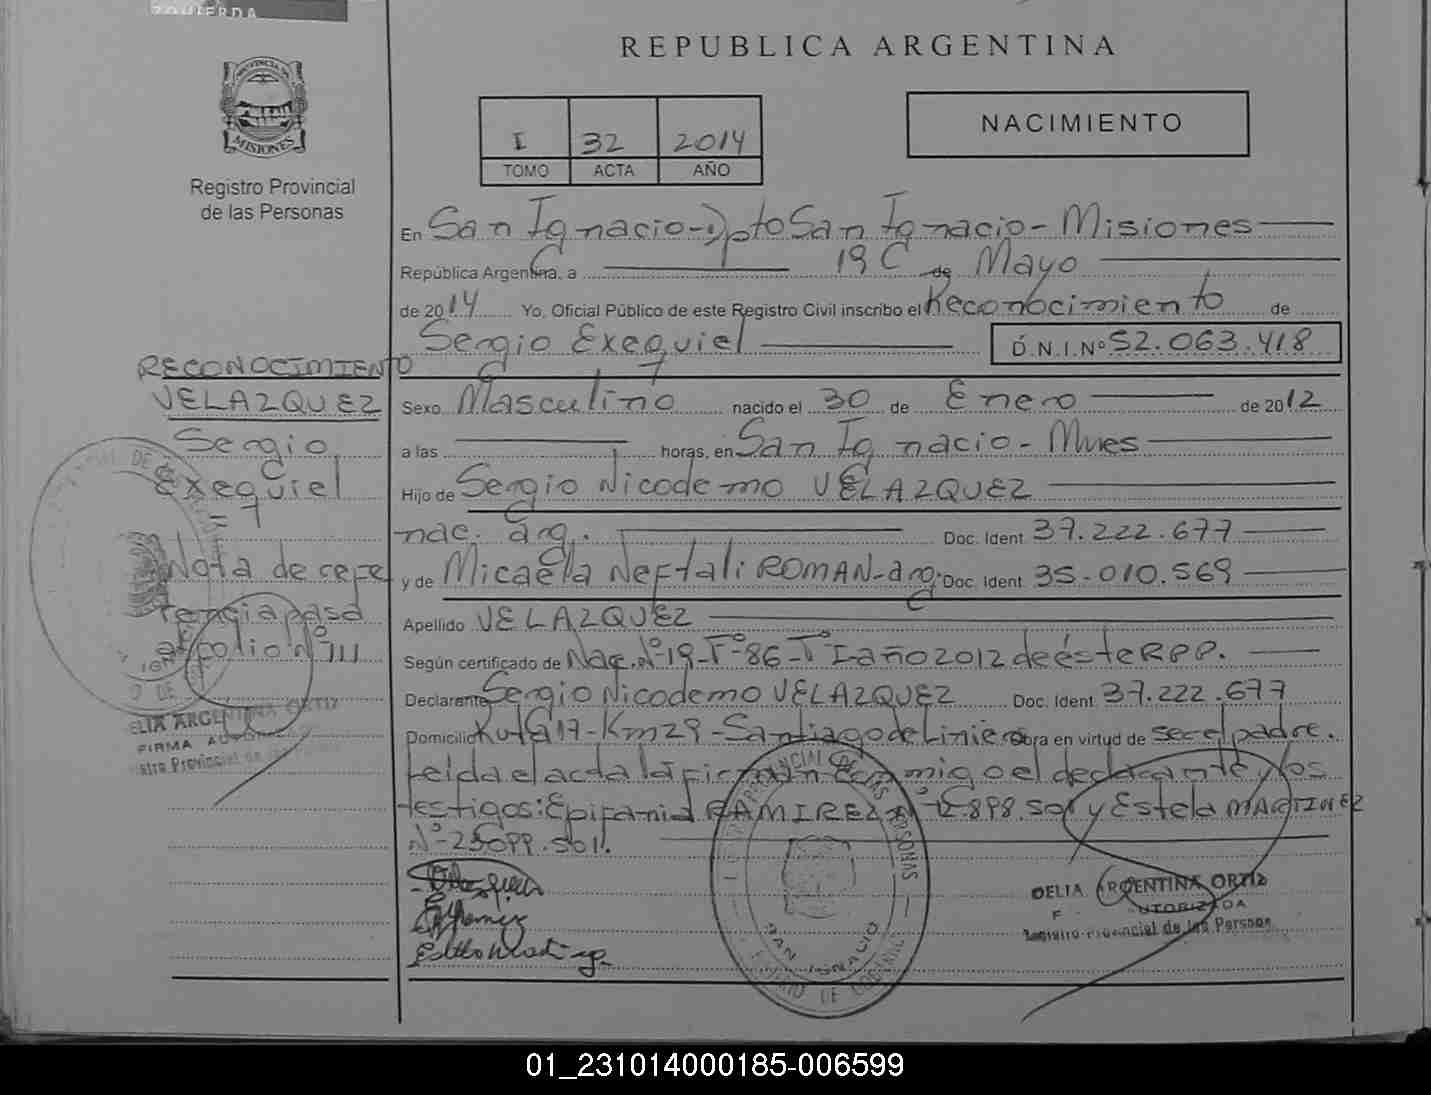 REPUBLICA ARGENTINA
PROVINCIA DE
MISIONES
Registro Provincial
de las Personas
I 32 2014
TOMO ACTA AÑO
NACIMIENTO
En San Ignacio-Dpto San Ignacio- Misiones
República Argentina, a 19 de Mayo
de 2014 Yo, Oficial Público de este Registro Civil inscribo el Reconocimiento de
Sergio Exequiel D.N.I.Nº 52.063.418
RECONOCIMIENTO
VELAZQUEZ
Sergio
Exequiel
Nota de refe
rencia pasa
al folio Nº 111
Sexo Masculino nacido el 30 de Enero de 2012
a las horas, en San Ignacio - Mnes
Hijo de Sergio Nicodemo VELAZQUEZ
nac. arg. Doc. Ident. 37.222.677
y de Micaela Neftali ROMAN-arg. Doc. Ident. 35.010.569
Apellido VELAZQUEZ
Según certificado de Nac. Nº 19-Fº 86-Tº I-año 2012 de éste RPP.
Declarante Sergio Nicodemo VELAZQUEZ Doc. Ident. 37.222.677
Domicilio Ruta 17-Km 29-Santiago de Liniers obra en virtud de ser el padre.
Leida el acta la firman conmigo el declarante y los
testigos: Epifania RAMIREZ y Estela MARTINEZ
DELIA ARGENTINA ORTIZ
FIRMA AUTORIZADA
Registro Provincial de las Personas
SAN IGNACIO
DELIA ARGENTINA ORTIZ
AUTORIZADA
Registro Provincial de las Personas
01_231014000185-006599